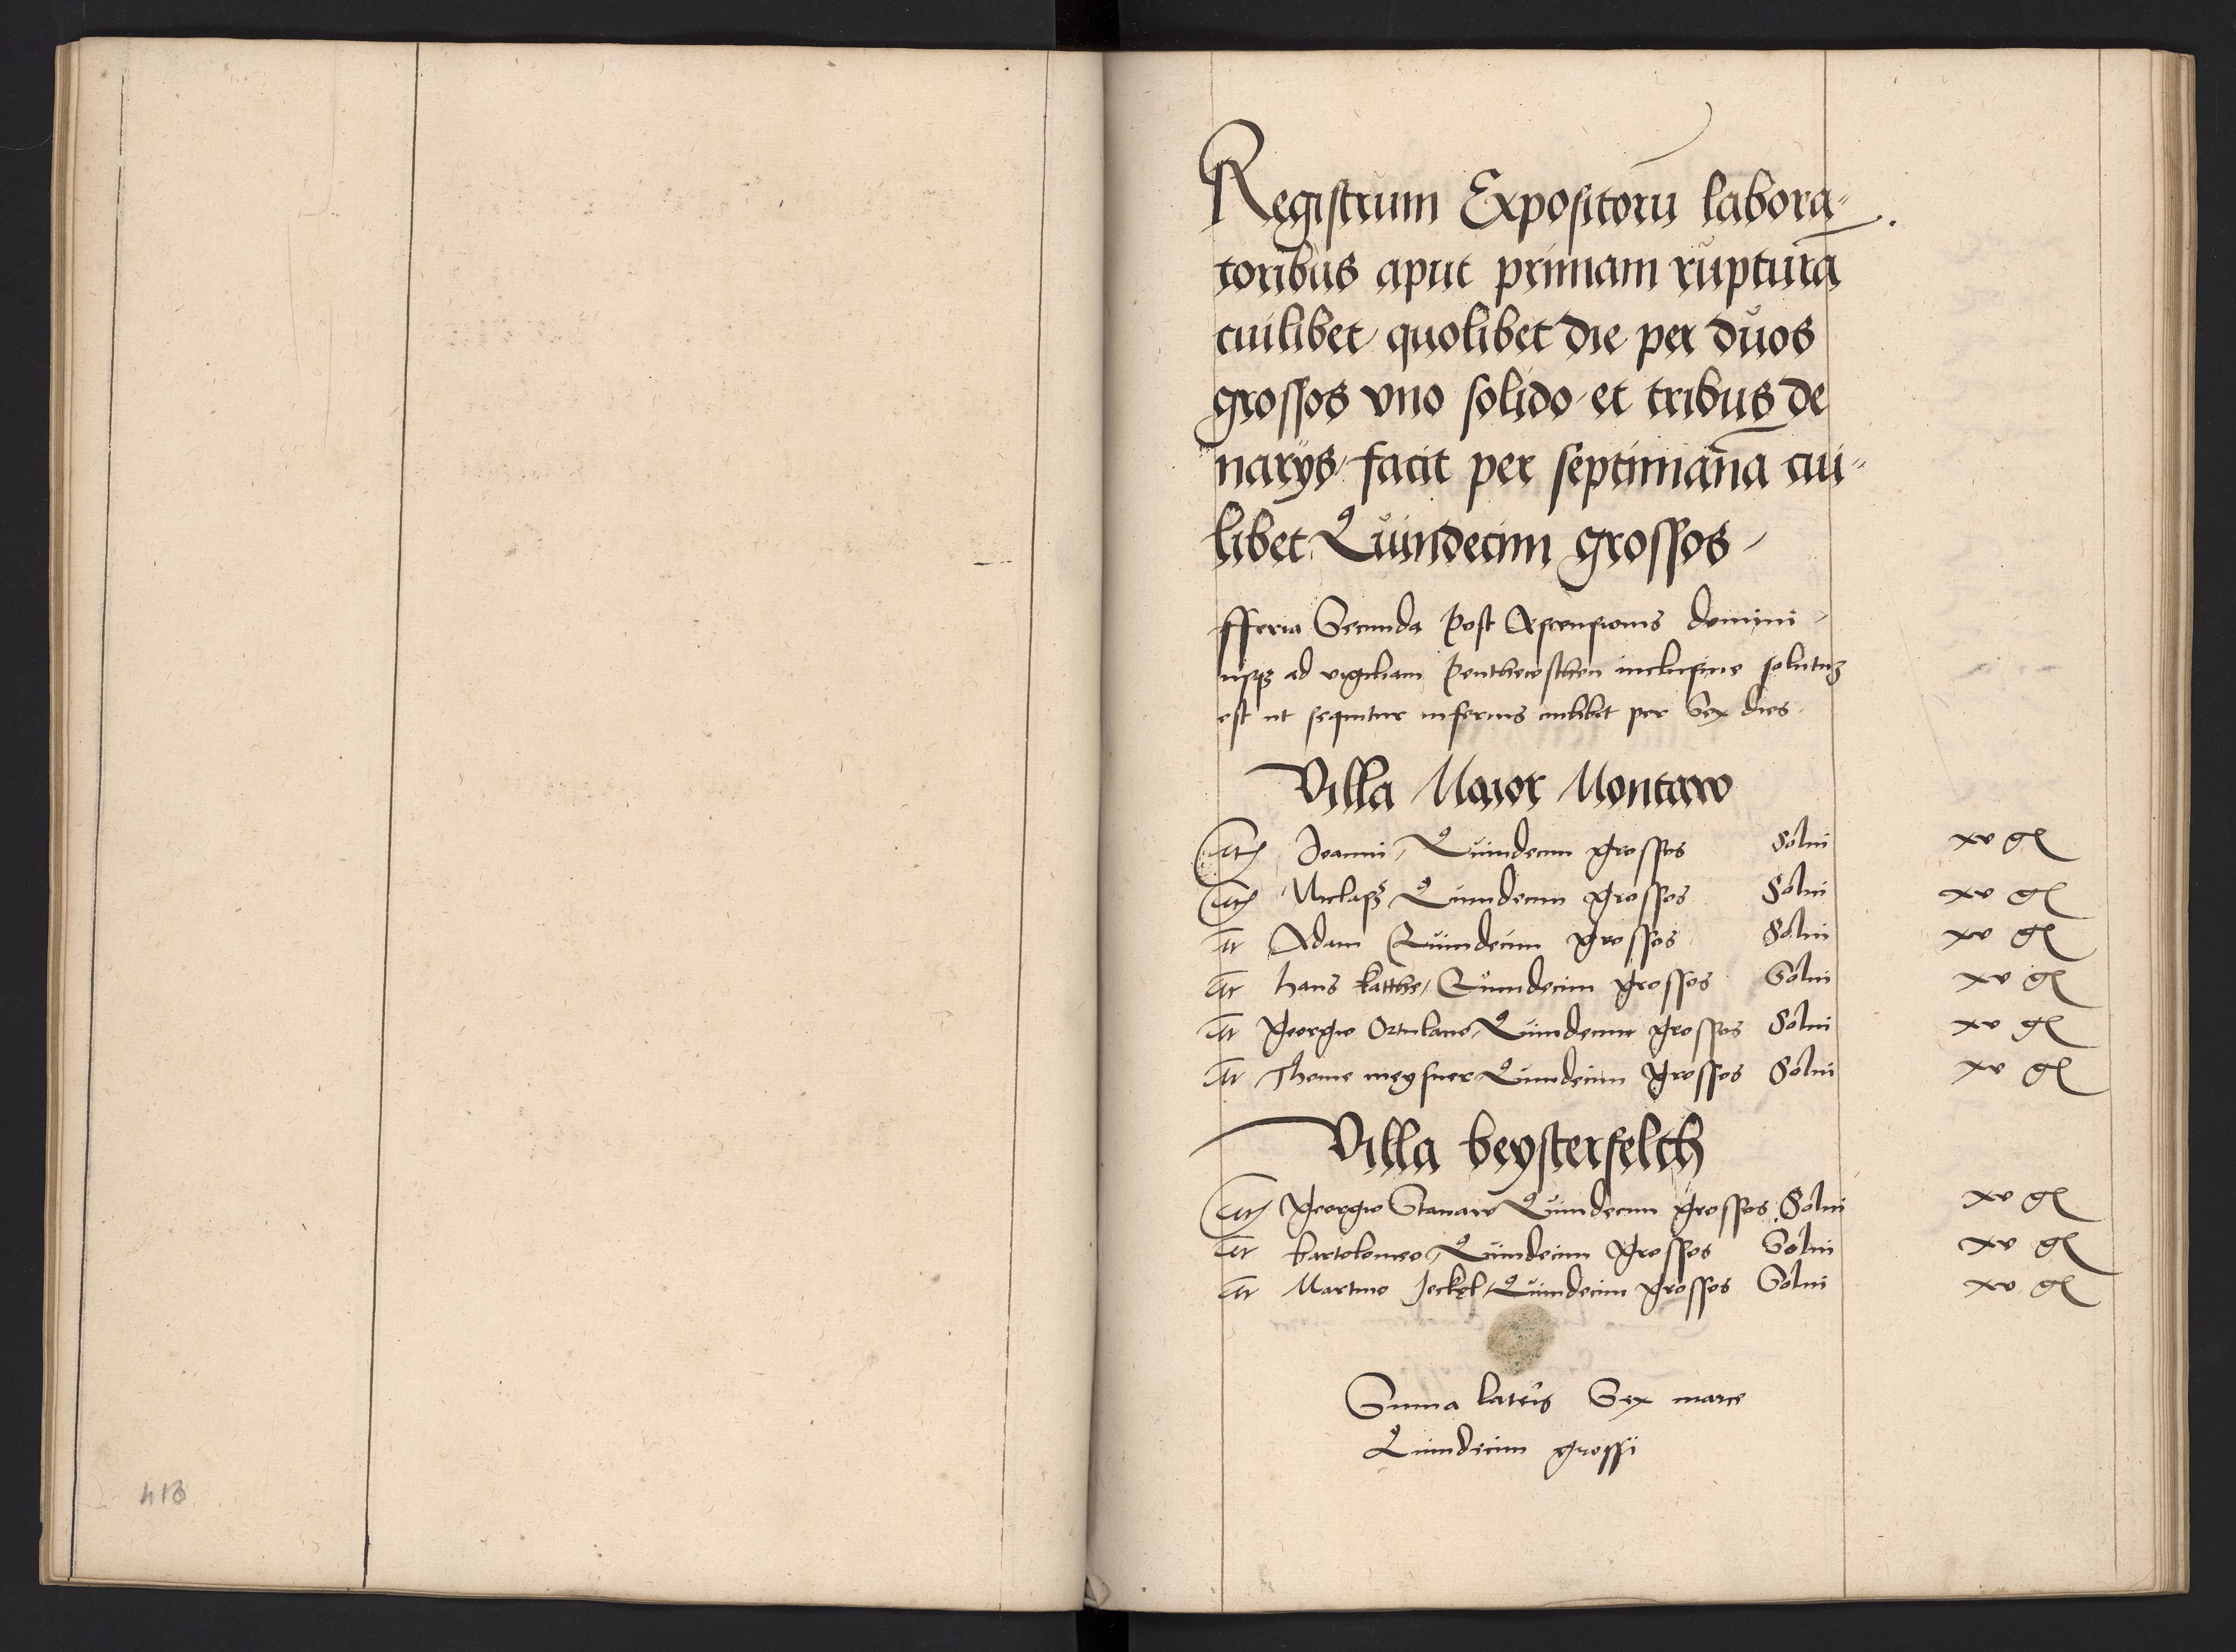 413
Registrum Expositorū labora⸗
toribus aput primam rupturā
cuilibet quolibet die per duos
grossos vno solido et tribus de
narijs facit per septimana cui⸗
libet Quindecim grossos
fferia Secunda post Ascensionis domini
usqz ad vigiliam penthecosthen inclusiue solutuz
est ut sequitur inferius cuilibet per Sex dies
Villa Maior Montaw
Joanni Quindecim grossos Solui xv g
Niclaß Quindecim grossos Solui xv g
Adam Quindecim grossos Solui xv g
hans katthe Quindecim grossos Solui xv g
georgio Ortulano Quindecim grossos Solui xv g
Thome meysner Quindecim grossos Solui xv g
Villa beysterfelth
georgio Stanaw Quindecim grossos Solui xv g
bartolomeo Quindecim grossos Solui xv g
Martino Jeckel Quindecim grossos Solui xv g
Suma lateris Sex marce
Quindecim grossi